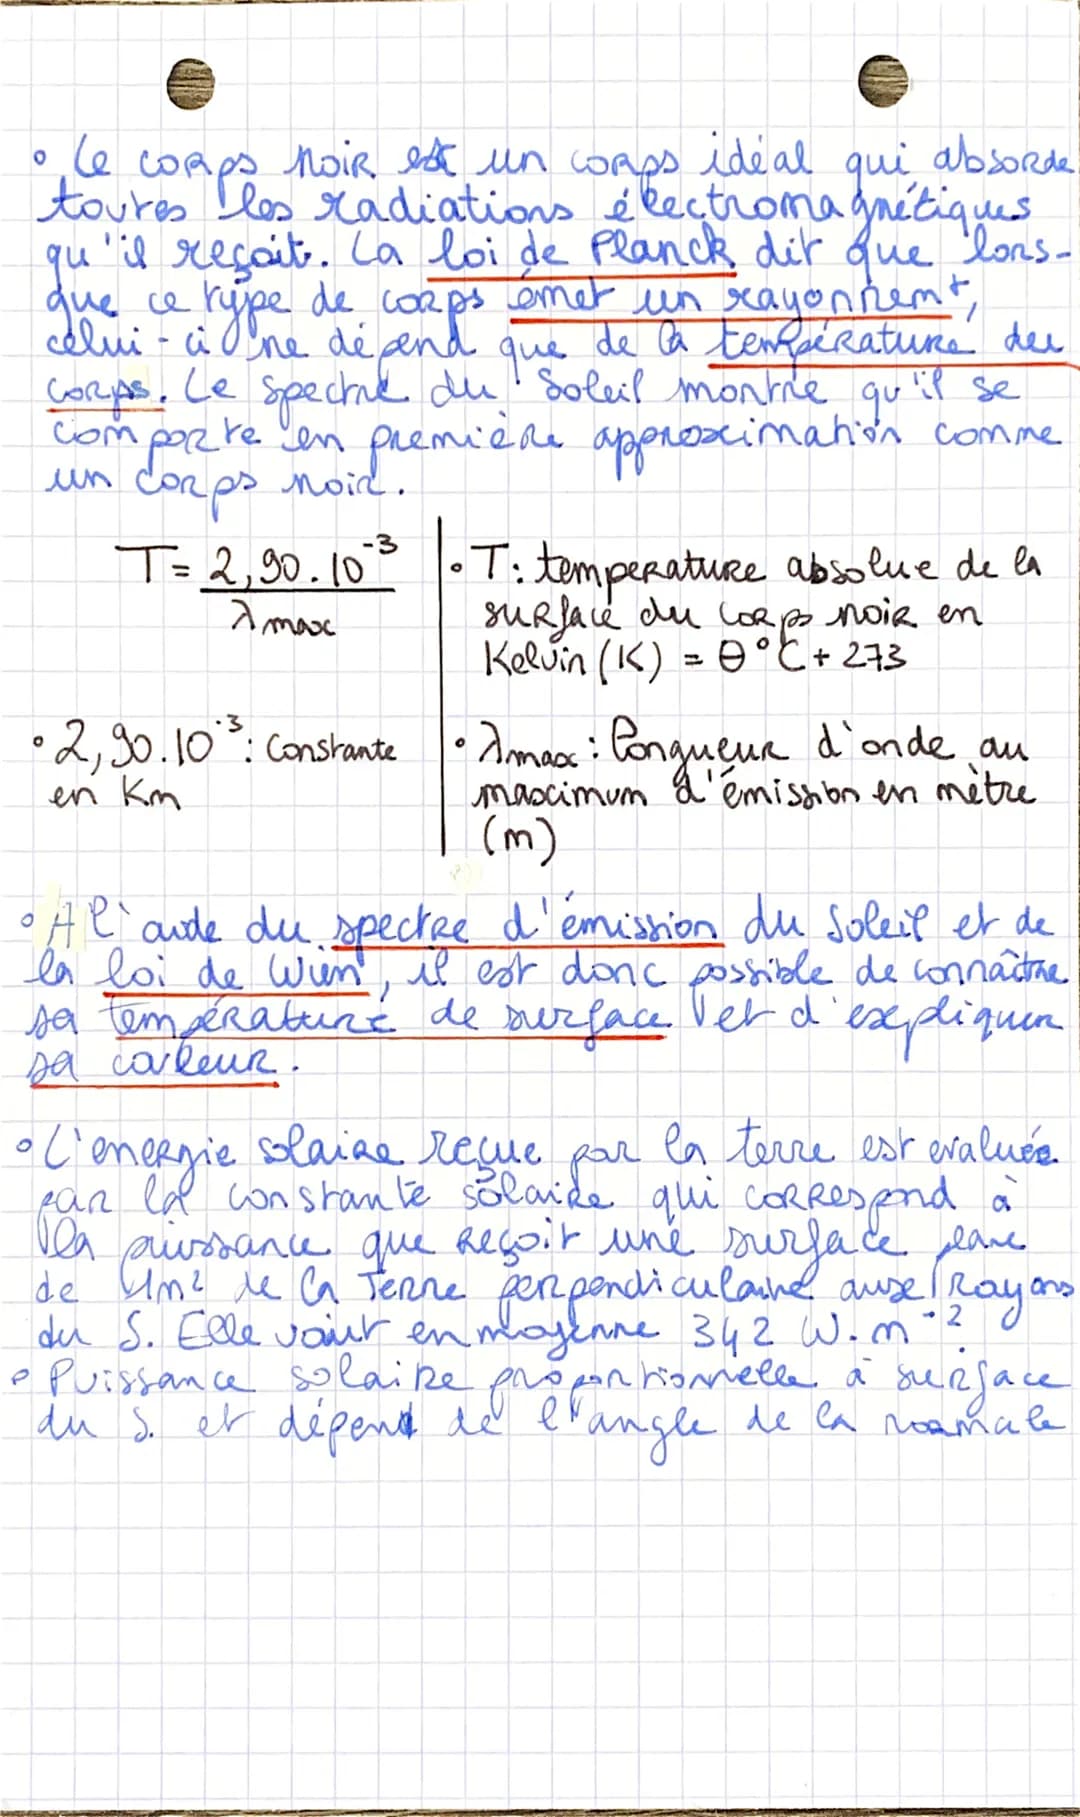 • Le corps noir est un corps idéal qui absorde
toutes les radiations électromagnétiques
qu'il reçoit. La loi de Planck dit que lors-
que ce type de corps émet un rayonnemt,
celui-ci ne dépend que de la température du
corps. Le spectre du Soleil montre qu'il se
comporte en première approximation comme
un corps noir.
T = 2,90.10⁻³ / λmax
• T : température absolue de la
surface du corps noir en
Kelvin (K) = θ°C + 273
• 2,90.10⁻³ : Constante
en Km
• λmax : Longueur d'onde au
maximum d'émission en mètre
(m)
• A l'aide du spectre d'émission du Soleil et de
la loi de Wien, il est donc possible de connaître
sa température de surface et d'expliquer
sa couleur.
• L'energie solaire reçue par la terre est evaluée
par la constante solaire qui correspond à
la puissance que reçoit une surface plane
de 1m² de la Terre perpendiculaire aux rayons
du S. Elle vaut en moyenne 342 W.m⁻²
• Puissance solaire proportionnelle à surface
du S. et dépend de l'angle de la normale